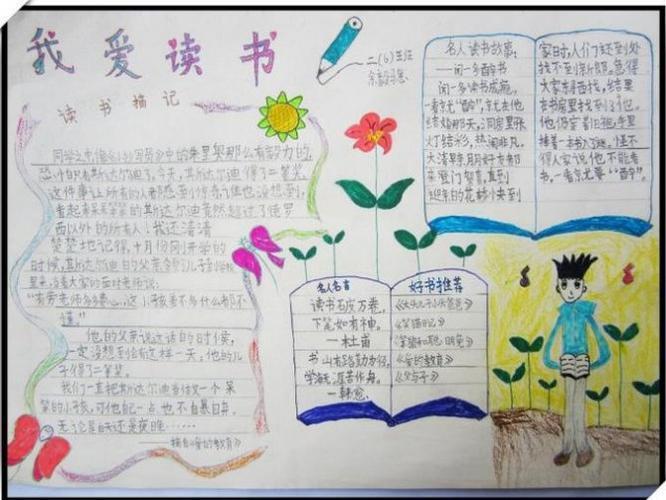 我爱读书
二(6)班
读书摘记
同学之中像《小抄写员》中的朱里奥那么有毅力的,
恐怕只有斯达尔迪了。今天,斯达尔迪得了二等奖。
这件事让所有的人都感到惊奇,谁也没想到,
看起来呆呆笨笨的斯达尔迪竟然超过了德罗
西以外的所有人!我还清清
楚楚地记得,十月份刚开学的
时候,斯达尔迪的父亲带儿子到学校
里来,当着大家的面对老师说:
“有劳老师多费心,这小孩差不多什么都不
懂”
他的父亲说这话的时候,
一定没想到会有这样一天,他的儿
子得了二等奖。
我们一直把斯达尔迪当做一个呆
笨的小孩,可他自己一点也不自暴自弃。
无论是白天还是夜晚……
——摘自《爱的教育》
名人读书故事:
——闻一多醉书
闻一多读书成瘾,
一看就“醉”,就在他
结婚那天,洞房里张
灯结彩,热闹非凡。
大清早亲朋好友都
来登门贺喜,直到
迎亲的花轿快到
家时,人们还到处
找不到新郎。急得
大家东寻西找,结果
在书房里找到了他。
他仍穿着旧袍,手里
捧着一本书入了迷。怪不
得人家说他不能看
书,一看就要“醉”。
名人名言
读书破万卷,
下笔如有神。
—杜甫
书山有路勤为径,
学海无涯苦作舟。
—韩愈
好书推荐
《笑猫日记》
《爱的教育》
《父与子》